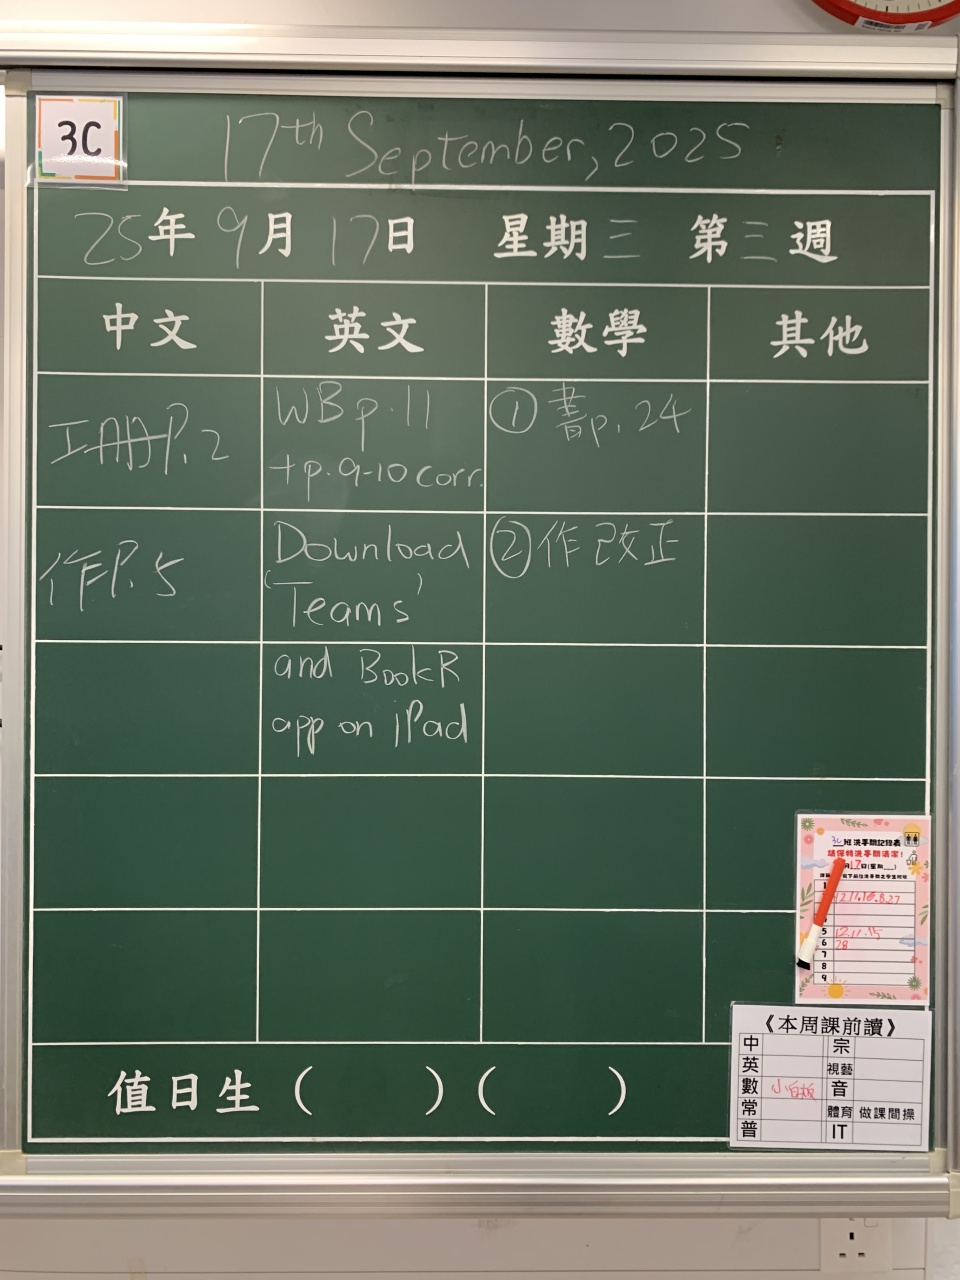 3C
17th September, 2025
25年9月17日 星期三 第三週
中文 英文 數學 其他
工冊P.2
WB p.11
+p.9-10 corr.
①書p.24
作P.5
Download
'Teams'
②作改正
and BookR
app on iPad
值日生( )( )
3C班洗手間記錄表
請保持洗手間清潔!
月17日(星期__)
12.11.16.8.27
5 12.11.15
6 28
7
8
9
《本周課前讀》
中 宗
英 視藝
數 小白板 音
常 體育 做課間操
普 IT